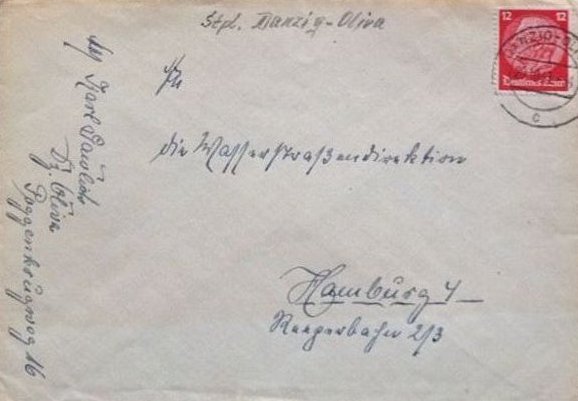 Stpl. Danzig-Oliva
12 12
Deutsches Reich
DANZIG-OL
c
An
die Wasserstraßendirektion
Hamburg 4
Reeperbahn 2/3
Karl
Dz. Oliva
Poggenkrugweg 16